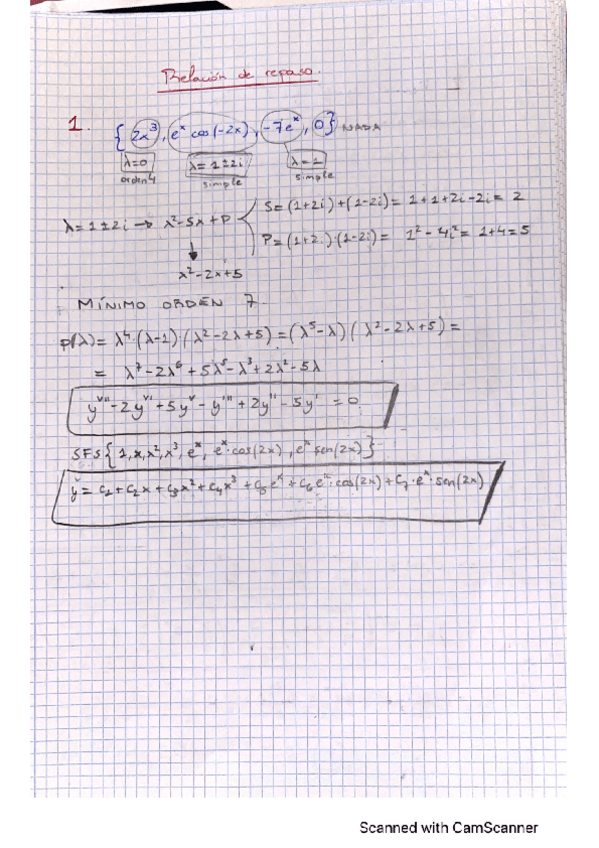 Relación de repaso.
1. { 2x³, eˣ cos(-2x), -7eˣ, 0} NADA
λ=0 λ=1±2i λ=1
orden 4 simple simple
λ=1±2i → x²-Sx+P S=(1+2i)+(1-2i)= 1+1+2i-2i= 2
P=(1+2i)·(1-2i)= 1²-4i²= 1+4=5
x²-2x+5
MÍNIMO ORDEN 7.
p(λ)= λ⁴·(λ-1)·(λ²-2λ+5)=(λ⁵-λ)(λ²-2λ+5)=
= λ⁷-2λ⁶+5λ⁵-λ³+2λ²-5λ
yⱽᴵᴵ-2yⱽᴵ+5yⱽ-y'''+2y''-5y' =0
SFS{1,x,x²,x³,eˣ, eˣ·cos(2x), eˣ sen(2x)}
y= C₁+C₂x+C₃x²+C₄x³+C₅eˣ+C₆eˣ·cos(2x)+C₇·eˣ·sen(2x)
Scanned with CamScanner